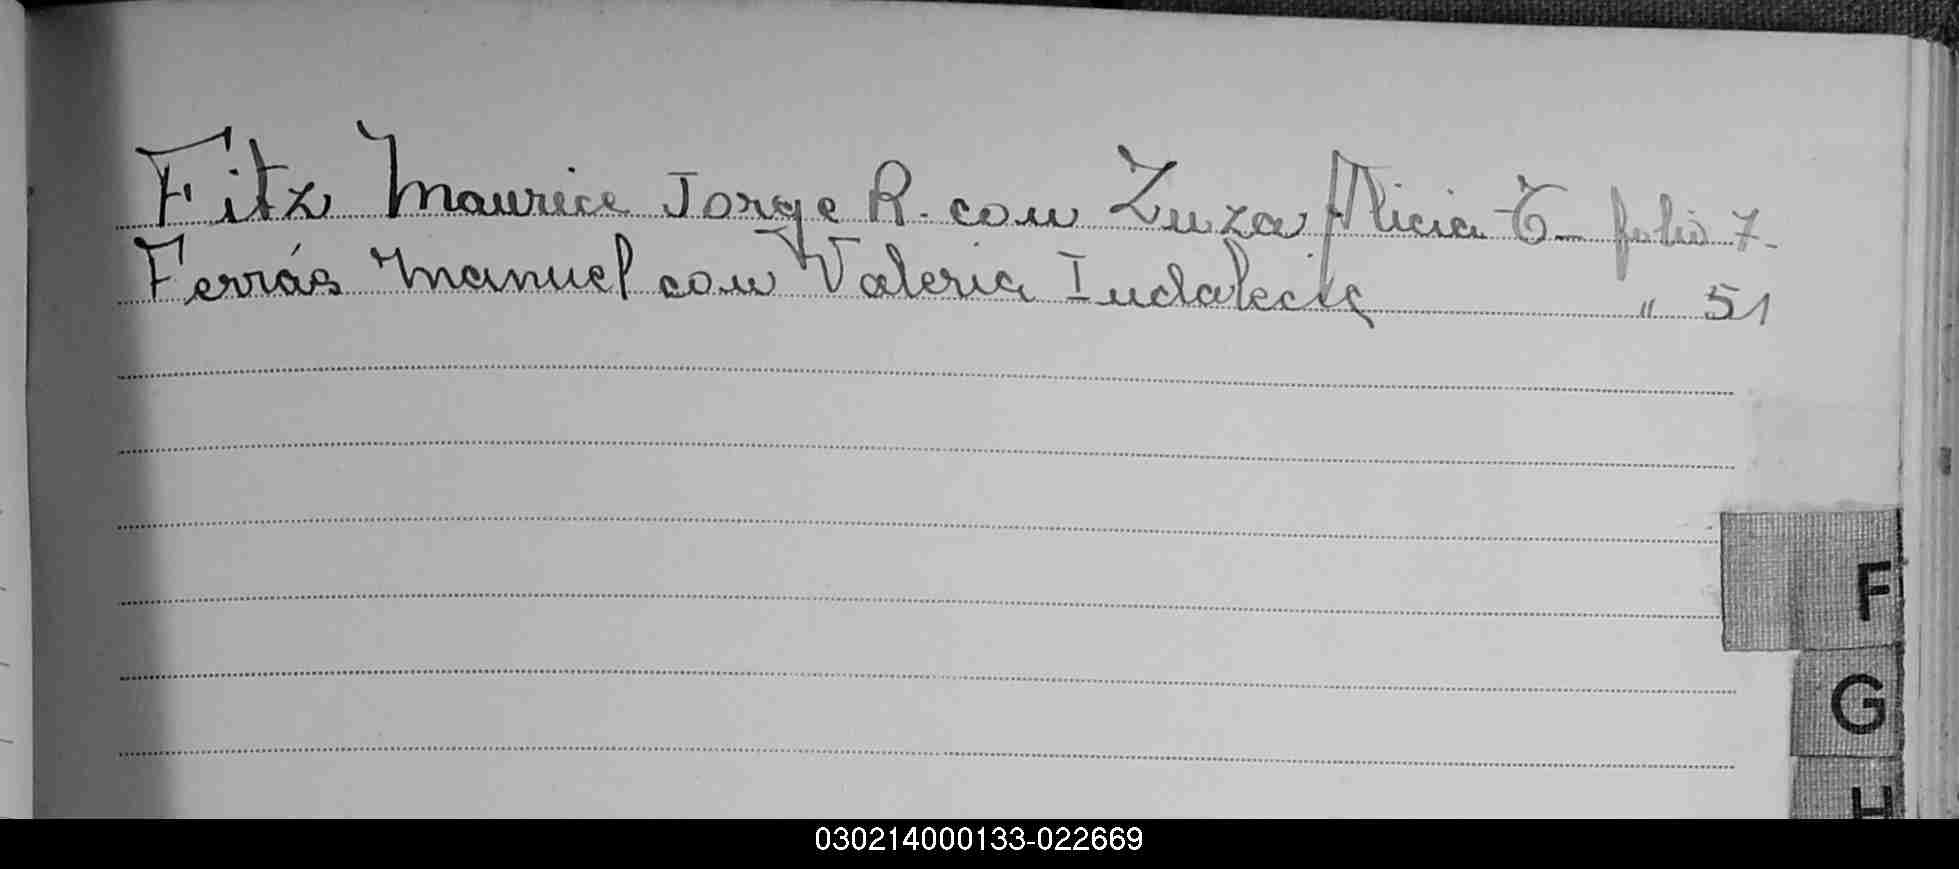 Fitz Maurice Jorge R. con Zuza Alicia T- folio 7-
Ferrás Manuel con Valeria Indalecia " 51
F
G
H
030214000133-022669